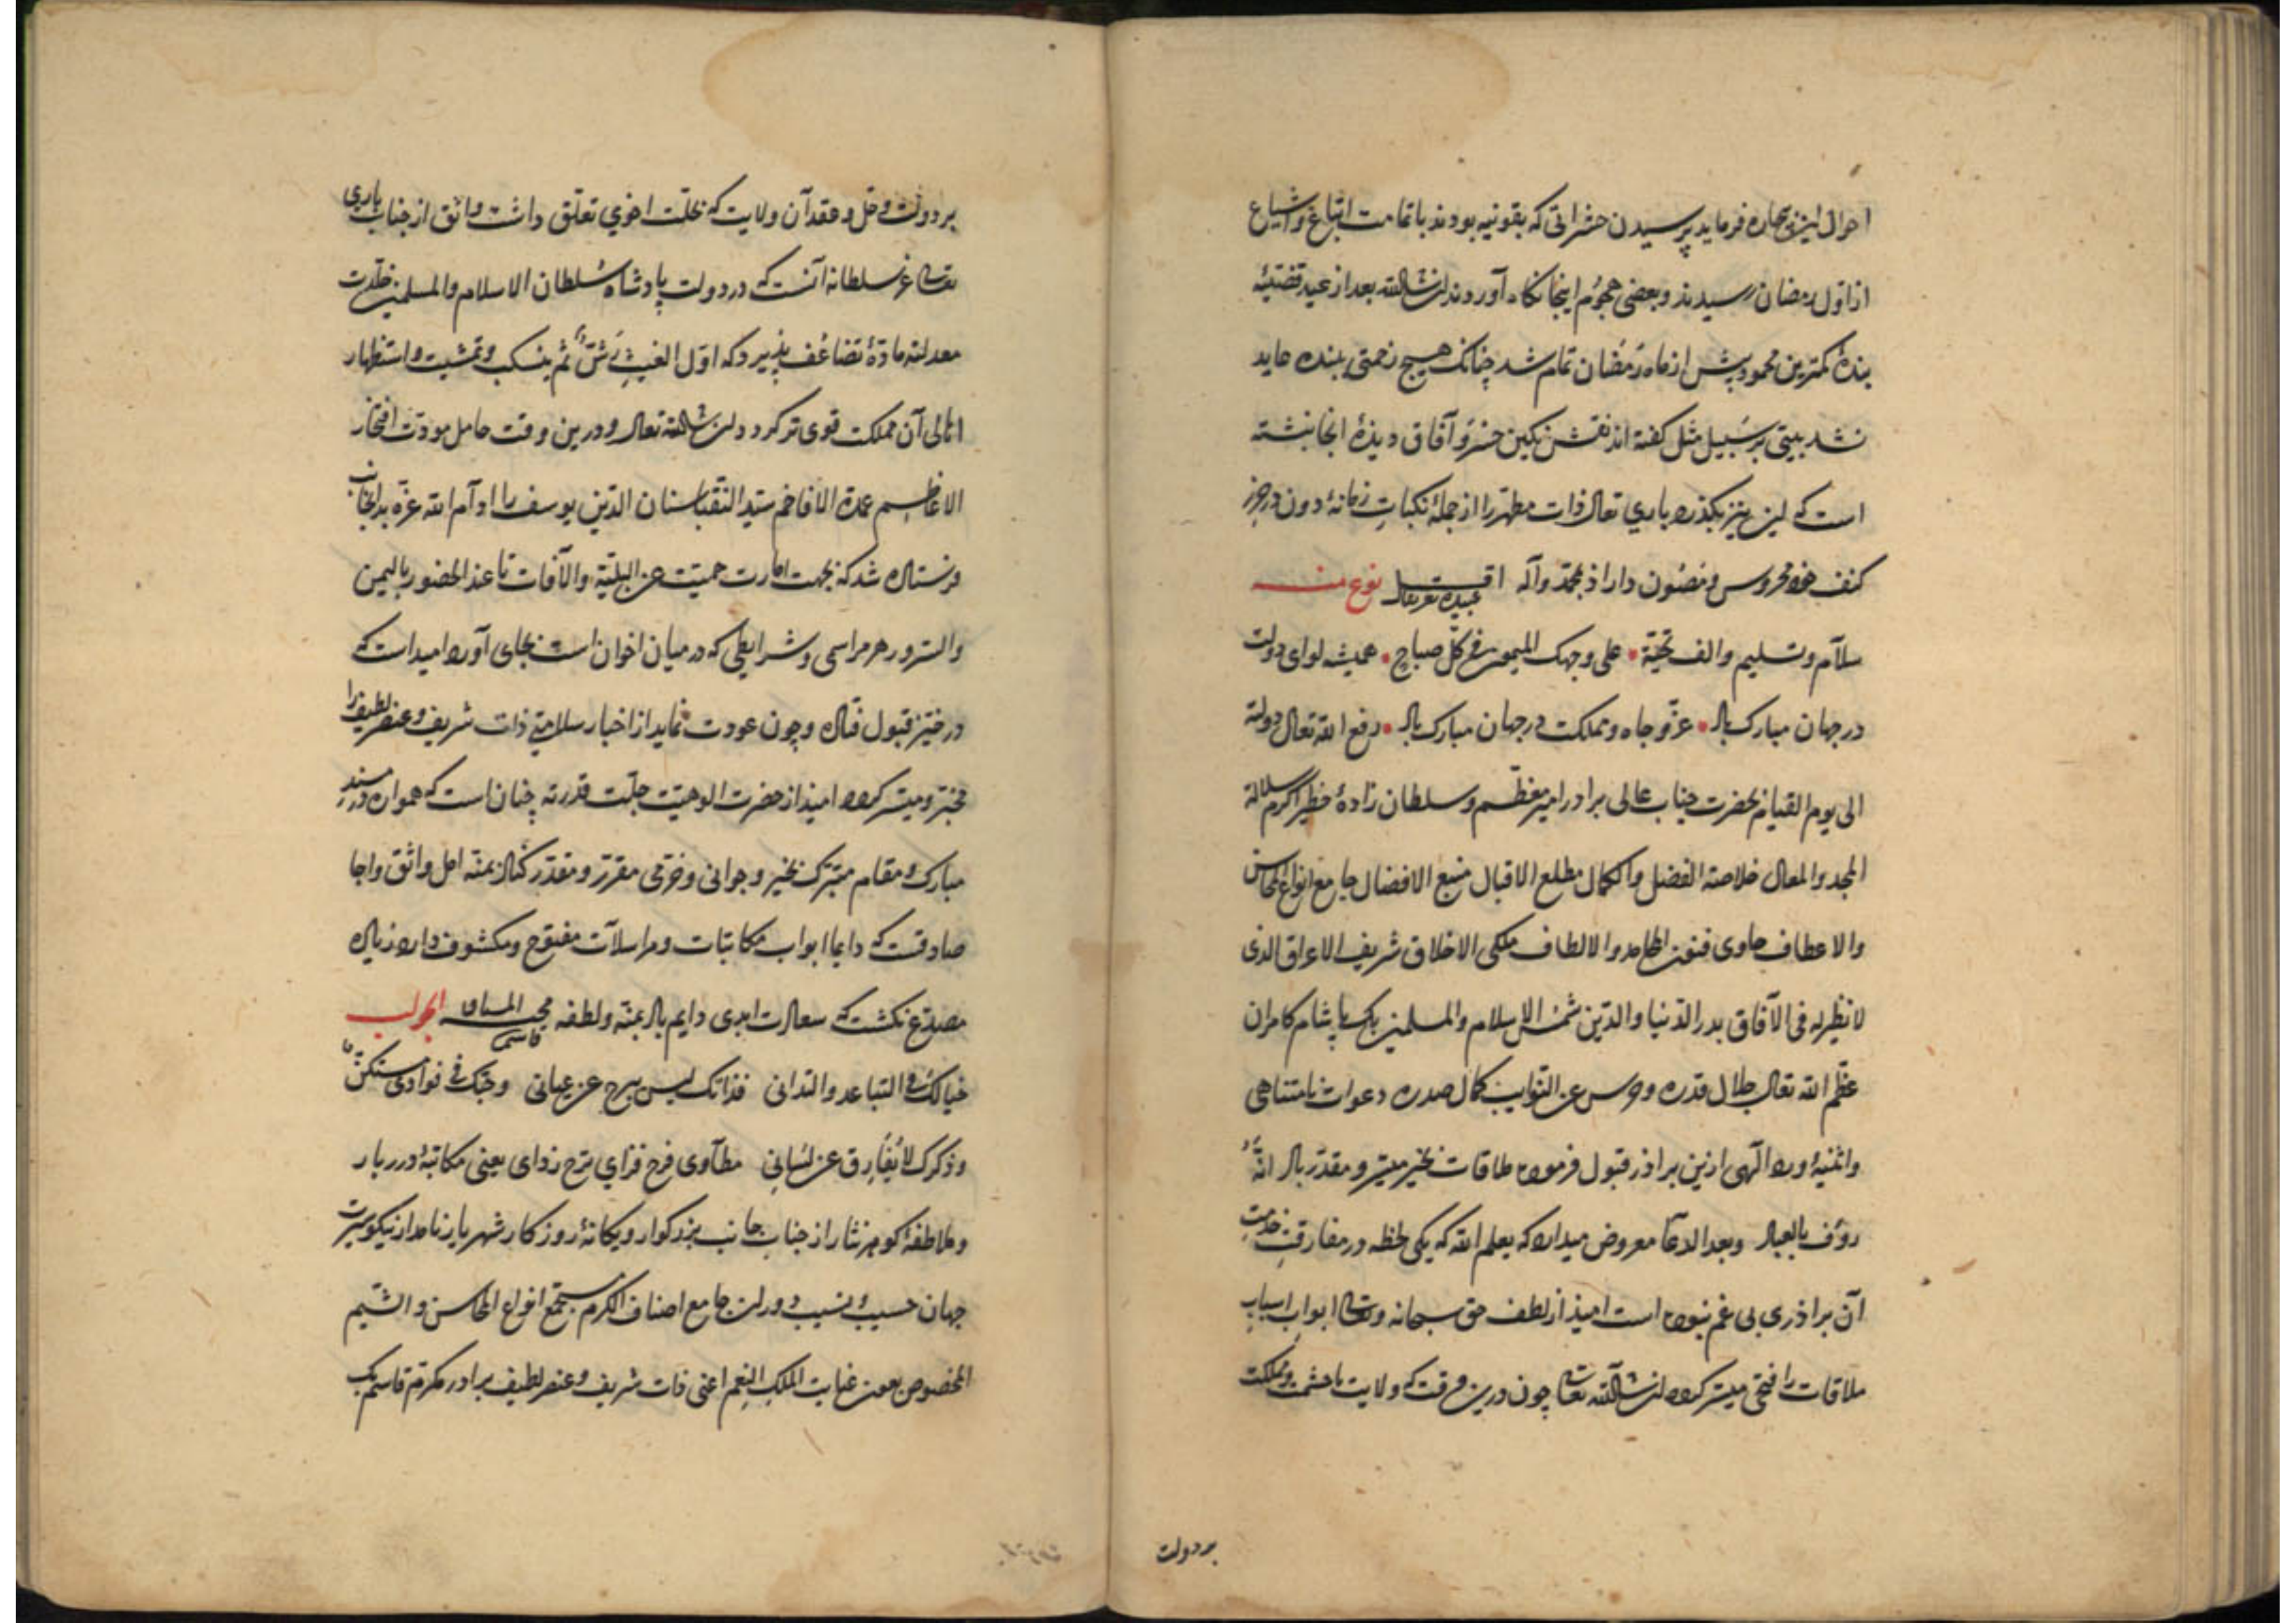 احوال این بیچاره فرماید پرسیدن حشراتی که بقونیه بودند با تمامت اتباع و اشیاع
از اول رمضان رسیدند و بعضی هجوم اینجا نکاه آوردند ان شاالله بعد از عید قضیّهٔ
بندهٔ کمترین محمود پیش از ماه رمضان تمام شد چنانک هیچ زحمتی ببنده عاید
نشد بیتی بر سبیل مثل کفته اند نقش نکین خسرو آفاق دیدهٔ انجا نبشته
است که این نیز بکذرد باری تعالی ذات مطهر را از جملهٔ نکبات زمانهٔ دون در حرز
کنف خود محروس و مصون داراد بمحمد وآله نوع منه
سلام وتسلیم والف تحیّة • علی وجهک المیمون فی کلّ صباح • همیشه لوای دولت
در جهان مبارک باد • عزّ و جاه و مملکت در جهان مبارک باد • رفع الله تعالی دولته
الی یوم القیام بحضرت جناب عالی برادر امیر معظّم وسلطان زادهٔ خطیر اکرم سلالة
المجد والمعالی خلاصة الفضل والکمال مطلع الاقبال منبع الافضال جامع انواع المحاسن
والاعطاف حاوی فنون المحامد والالطاف ملکی الاخلاق شریف الاعراق الذی
لا نظیر له فی الآفاق بدر الدنیا والدین شمس الاسلام والمسلمین بک پاشام کامران
عظّم الله تعالی جلال قدره وحرس عن النوایب کمال صدره دعوات نامتناهی
واثنیهٔ اوراد الهی ازین براذر قبول فرموده ملاقات بخیر میسر و مقدّر باد انّهُ
رؤف بالعباد وبعد الدعا معروض میدارد که یعلم الله که یکی لحظه در مفارقت خدمت
آن براذری بی غم نبوده است امیذ از لطف حق سبحانه وتعالی ابواب اسباب
ملاقات را فتحی میسر کرداند ان شاالله تعالی چون درین وقت که ولایت با حشمت و مملکت
بردولت
بردولت و حل و عقد آن ولایت که بخلت اخوی تعلّق داشت واثق از جناب باری
تعالی عزّ سلطانه آنست که در دولت پادشاه سلطان الاسلام والمسلمین خلّدت
معدلته مادّهٔ تضاعف پذیرد که اوّل الغیث رشّ ثم ینسکب و تمشیت و استظهار
اهالی آن مملکت قوی تر کردد ان شاالله تعالی و درین وقت حامل مودّت افتخار
الاعاظم عمدة الافاخم سیّد النقبا سنان الدین یوسف را ادام الله عزّه بدان جناب
فرستاده شد که بجهت امارت حمیت عن البلیّة والآفات تا عند الحضور بالیمن
والسرور هر مراسمی و شرایطی که در میان اخوان است بجای آورد امید است که
در حیّز قبول فتاده و چون عودت نماید از اخبار سلامتی ذات شریف و عنصر لطیف را
مخبر و مبشر کردد امیذ از حضرت الوهیّت جلّت قدرته چنان است که همواره در مسند
مبارک و مقام متبرک بخیر و جوانی و خرّمی مقرّر و مقدّر کناد بمنّه امل واثق و رجا
صادقست که دایما ابواب مکاتبات و مراسلات مفتوح و مکشوف دارد زیاده
مصدّع نکشت که سعادت ابدی دایم باد بمنّه ولطفه الجواب
خیالک فی التباعد والتدانی فذاتک لیس یبرح عن عیانی وحبّک فی فوادی مستکنّ
وذکرک لا یُفارق عن لسانی مطاوی فرح فزای ترح زدای یعنی مکاتبهٔ درر بار
و ملاطفهٔ کوهر نثار از جناب جانب بزرکوار و یکانهٔ روزکار شهریار نامدار نیکو سیرت
جهان حسیب و نسیب دوران جامع اصناف الکرم مستجمع انواع المحاسن والشیم
المخصوص بعون عنایت الملک النعم اعنی ذات شریف و عنصر لطیف برادر مکرم قاسم بک